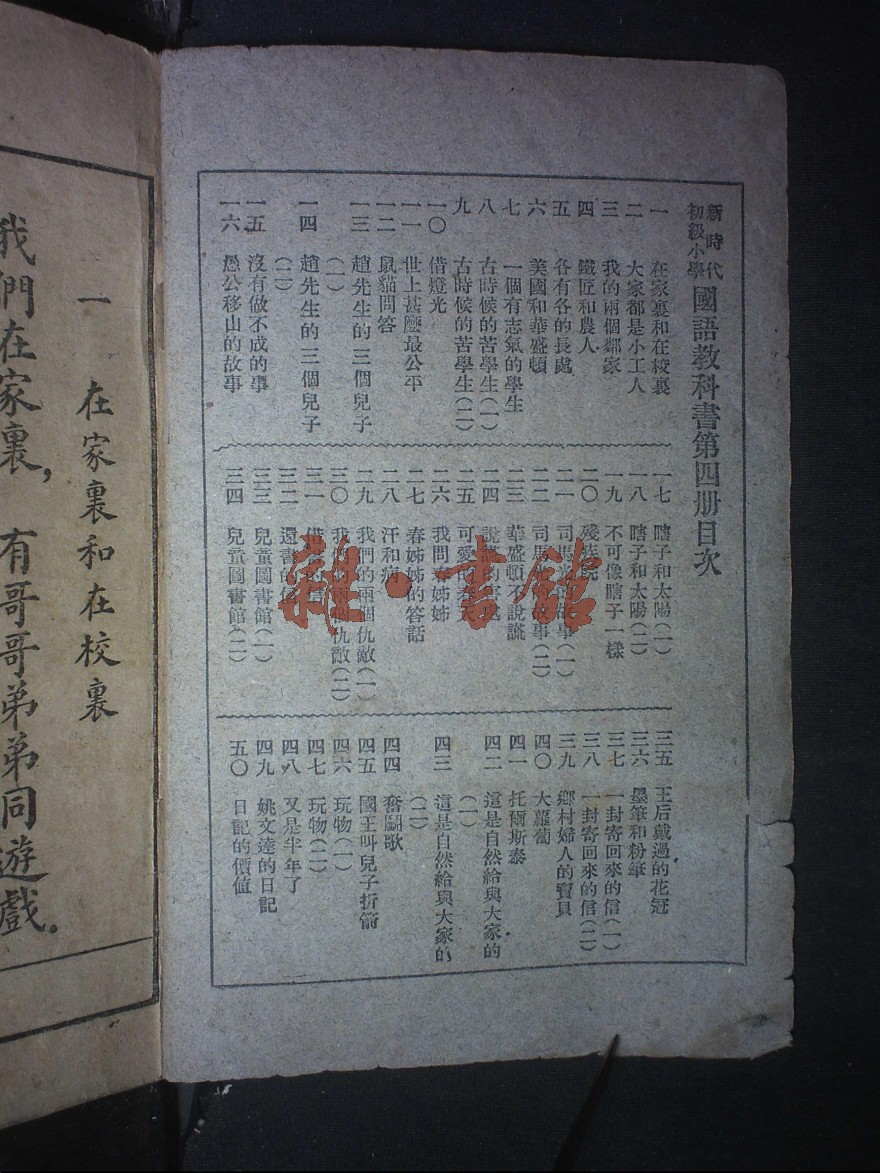 新時代
初級小學
國語教科書第四册目次
一 在家裏和在校裏
二 大家都是小工人
三 我的兩個鄰家
四 鐵匠和農人
五 各有各的長處
六 美國和華盛頓
七 一個有志氣的學生
八 古時候的苦學生(一)
九 古時候的苦學生(二)
一〇 借燈光
一一 世上甚麽最公平
一二 鼠貓問答
一三 趙先生的三個兒子
(一)
一四 趙先生的三個兒子
(二)
一五 沒有做不成的事
一六 愚公移山的故事
一七 瞎子和太陽(一)
一八 瞎子和太陽(二)
一九 不可像瞎子一樣
二〇 殘疾院
二一 司馬光的故事(一)
二二 司馬光的故事(二)
二三 華盛頓不說謊
二四 說謊的害處
二五 可愛的春天
二六 我問春姊姊
二七 春姊姊的答話
二八 汗和病
二九 我們的兩個仇敵(一)
三〇 我們的兩個仇敵(二)
三一 借書的信
三二 還書的信
三三 兒童圖書館(一)
三四 兒童圖書館(二)
三五 王后戴過的花冠
三六 墨筆和粉筆
三七 一封寄回來的信(一)
三八 一封寄回來的信(二)
三九 鄉村婦人的寶貝
四〇 大蘿蔔
四一 托爾斯泰
四二 這是自然給與大家的
(一)
四三 這是自然給與大家的
(二)
四四 奮鬭歌
四五 國王叫兒子折箭
四六 玩物(一)
四七 玩物(二)
四八 又是半年了
四九 姚文達的日記
五〇 日記的價值
雜·書館
一 在家裏和在校裏
我們在家裏,有哥哥弟弟同遊戲.